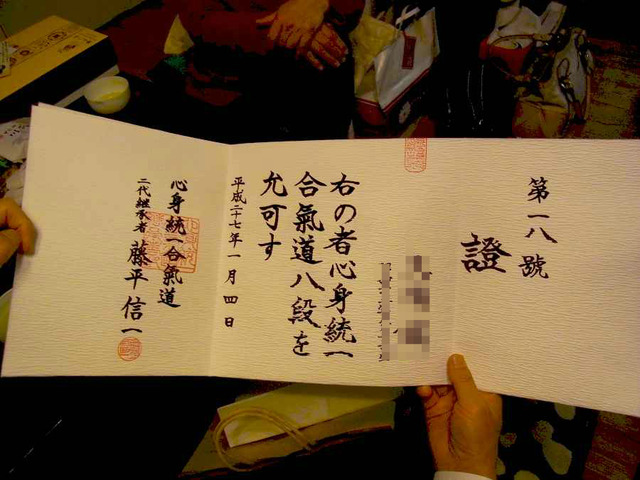 第一八號
證
右の者心身統一
合氣道八段を
允可す
平成二十七年一月四日
心身統一合氣道
二代継承者 藤平信一